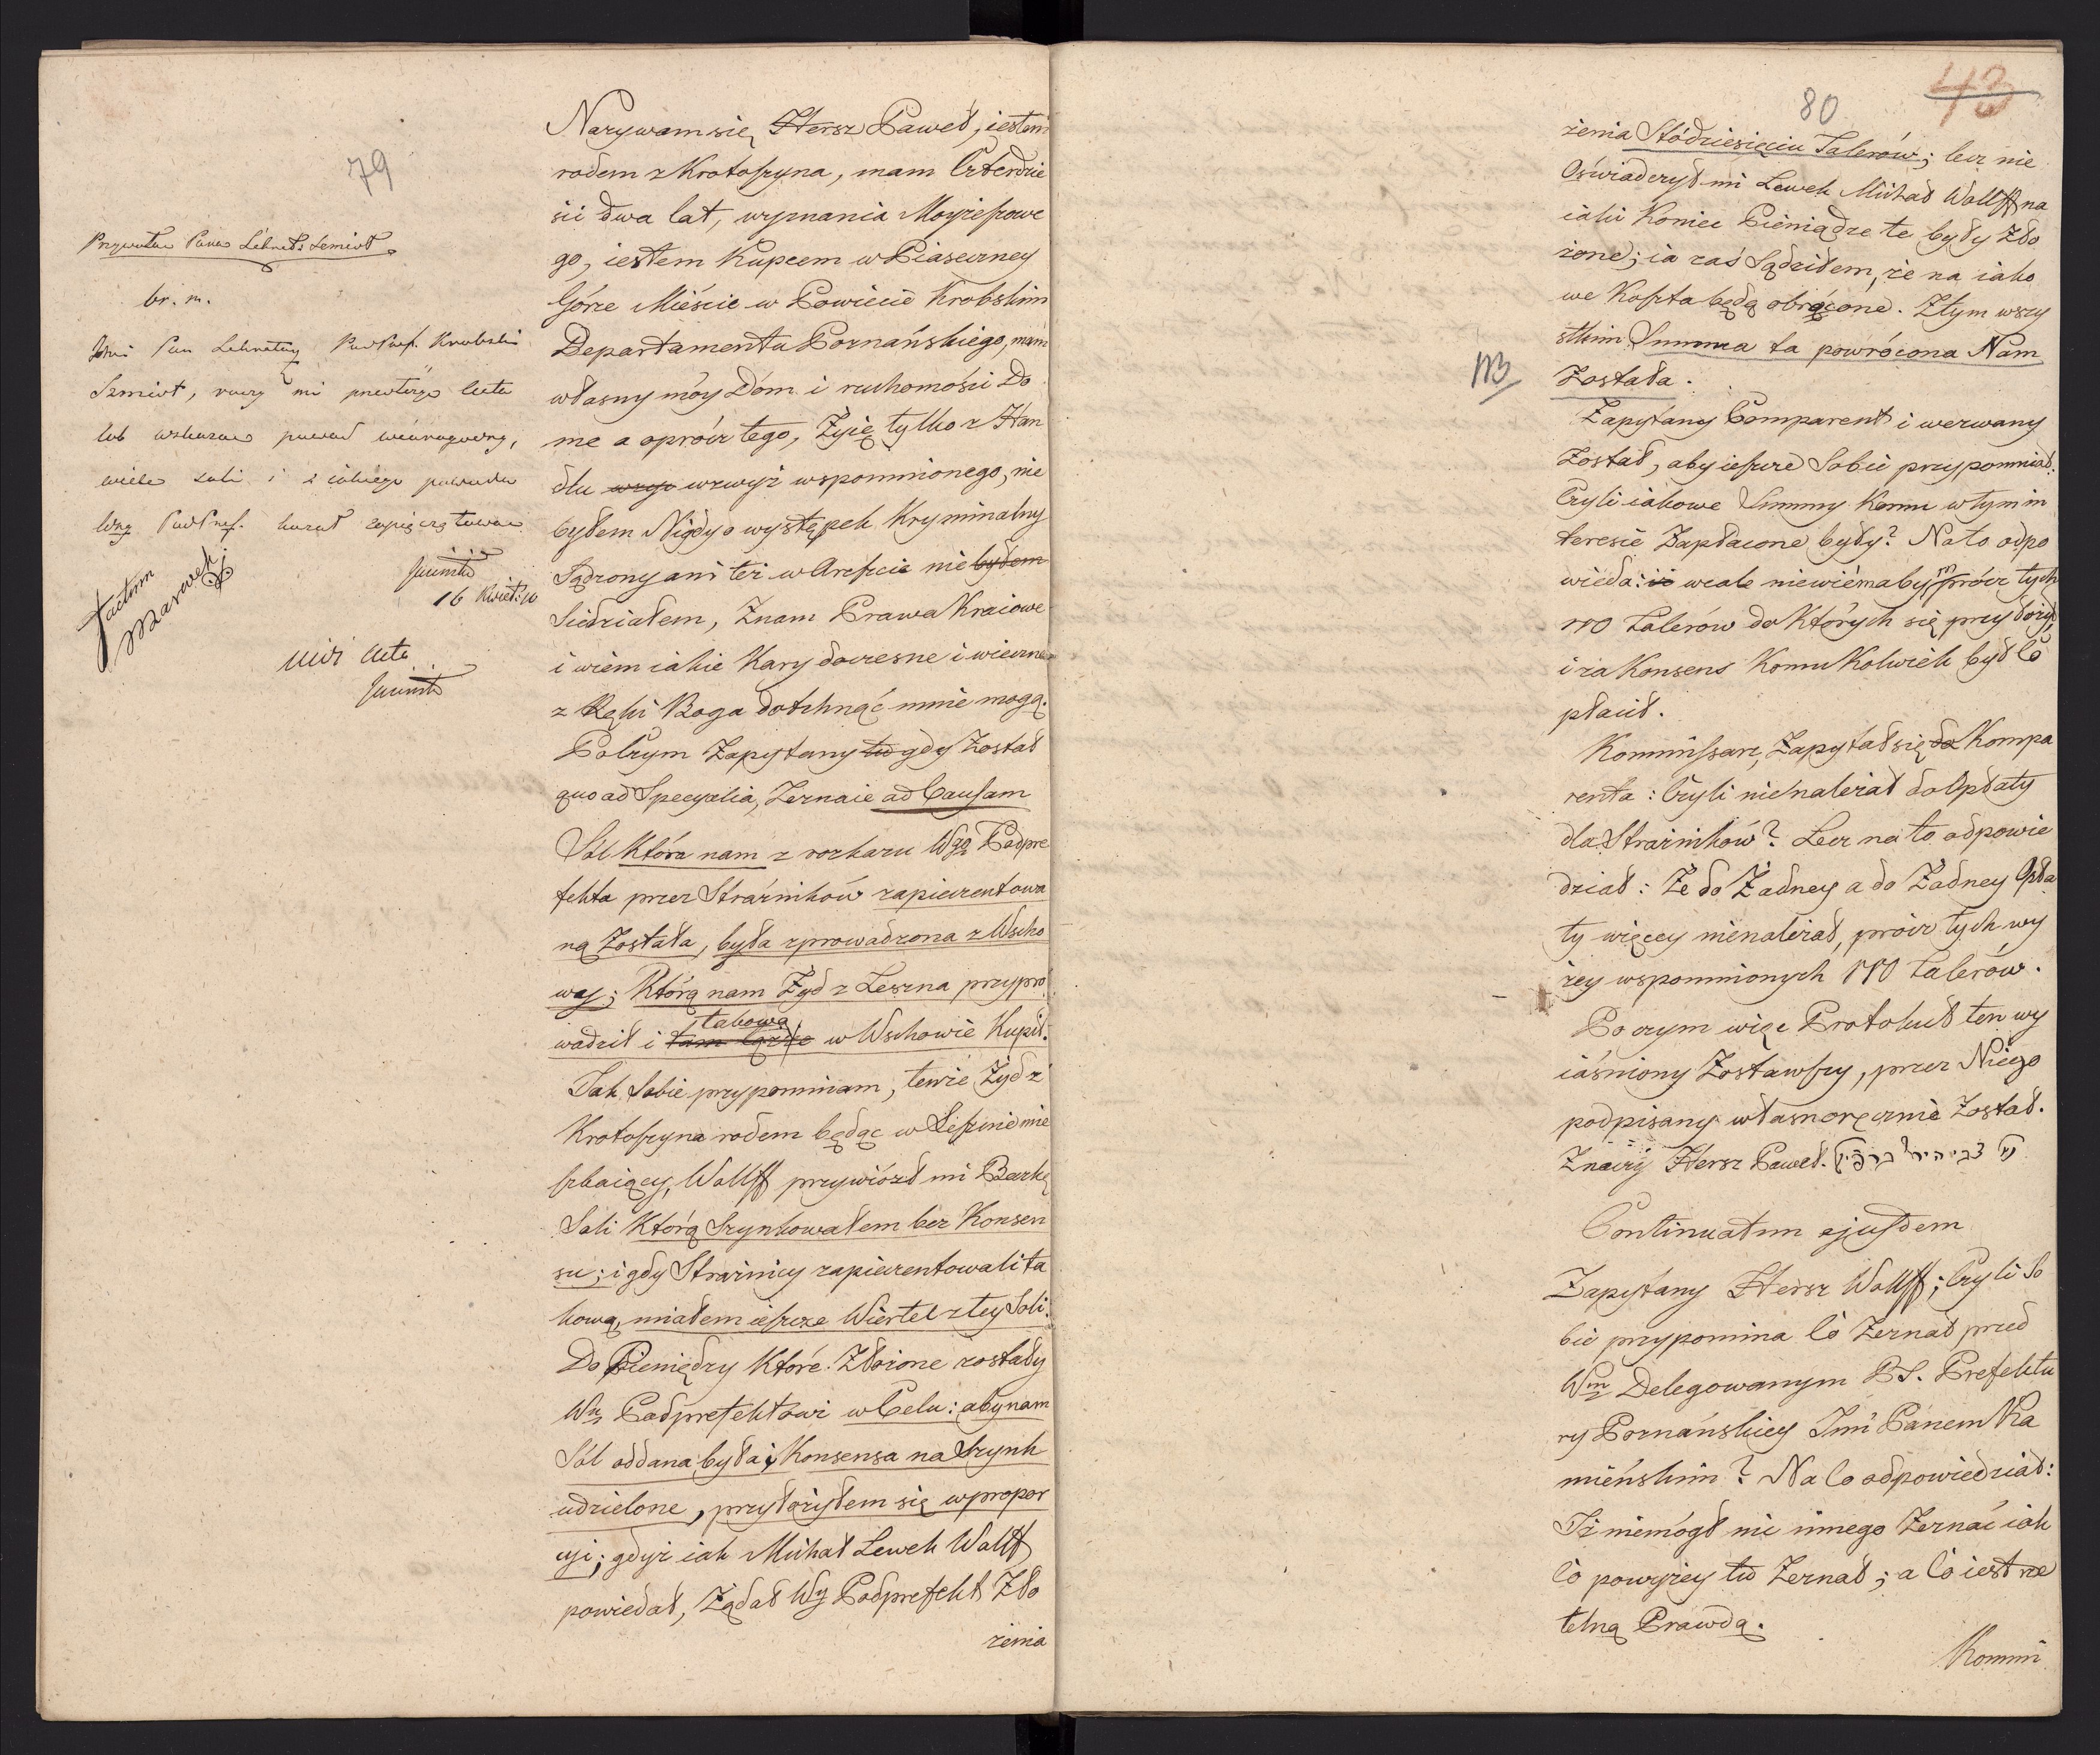 79
Przywołać Pana Sekret: Szmidt
br. m.
Jmć Pan Sekretarz PodPref. Krobski
Szmidt, raczy mi przesłać acta
lub wskazać powod wiarogodny,
wiele soli i z iakiego powodu
Wny PodPref. kazał zapieczętować
16 Kwiet: 10
factum
Marwek
ad acta
Nazywam się Hersz Paweł, iestem
rodem z Krotoszyna, mam Czterdzie
ści dwa lat, wyznania Moyżeszowe
go, iestem Kupcem w Piaseczney
Górze Mieście w Powiecie Krobskim
Departamentu Poznańskiego, mam
własny móy Dóm i ruchomości Do
me a oprócz tego, Żyię tylko z Han
dlu wzyo wzwyż wspomnionego, nie
byłem Nigdy o występek Kryminalny
Sądzony ani też w Areszcie nie byłem
Siedziałem, Znam Prawa Kraiowe
i wiem iakie Kary doczesne i wieczne
z Ręki Boga dotchnąć mnie mogą.
Poczym Zapytany tu gdy Został
quo ad Specyalia, Zeznaie ad Causam
Sól Która nam z rozkazu Wgo Podpre
fekta przez Strażników zapieczentowa
ną Została, była zprowadzona z Wscho
wy; Którą nam Żyd z Leszna przypro
wadził i takową w Wschowie Kupił.
Tak Sobie przypominam, tenże Żyd z
Krotoszyna rodem będąc w Lesznie mie
szkaiący, Wolff przywiózł mi Beczkę
Soli Którą Szynkowałem bez Konsen
su; i gdy Strażnicy zapieczentowali ta
kową, miałem ieszcze Wiertel z tey Soli.
Do Pieniędzy Które Złożone zostały
Wu Podprefektowi w Celu: aby nam
Sól oddana była i Konsensa na Szynk
udzielone, przyłożyłem się w propor
cyi; gdyż iak Michał Lewek Wolff
powiedał, Żądał Wy Podprefekt Zło
żenia
80
43
żenia Stódziesięciu Talerów; lecz nie
Oświadczył mi Lewek Michał Wolff na
iaki Koniec Pieniądze te były Zło
żone; ia zaś Sądziłem, że na iako
we Koszta będą obrócone. Ztym wszy
stkim Summa ta powrócona Nam
NB
Została.
Zapytany Comparent i wezwany
Został, aby ieszcze Sobie przypomniał:
Czyli iakowe Summy Komu w tym in
teresie Zapłacone były? Na to odpo
wieda: iż wcale niewié maby m prócz tych
110 Talerów do Których się przyłożył,
i za Konsens Komu Kolwiek był co
płacił.
Kommissarz, Zapytał się do Kompa
renta: Czyli nie należał do Opłaty
dla Strażników? Lecz na to odpowie
dział: Że do Żadney a do Żadney Opła
ty więcey nienależał, prócz tych wy
żey wspomnionych 110 Talerów.
Po czym więc Protokuł ten wy
iaśniony Zostawszy, przez Niego
podpisany własnoręcznie Został.
Znaczy Hersz Paweł.
Continuatum ejusdem
Zapytany Hersz Wolff; Czyli So
bie przypomina Co Zeznał przed
Wm Delegowanym P.S. Prefektu
ry Poznańskiey Jmć Panem Ka
mieńskim? Na Co odpowiedział:
Iż niemógł nic innego Zeznać iak
Co powyżey tu Zeznał; a Co iest rze
telną Prawdą.
Kommi